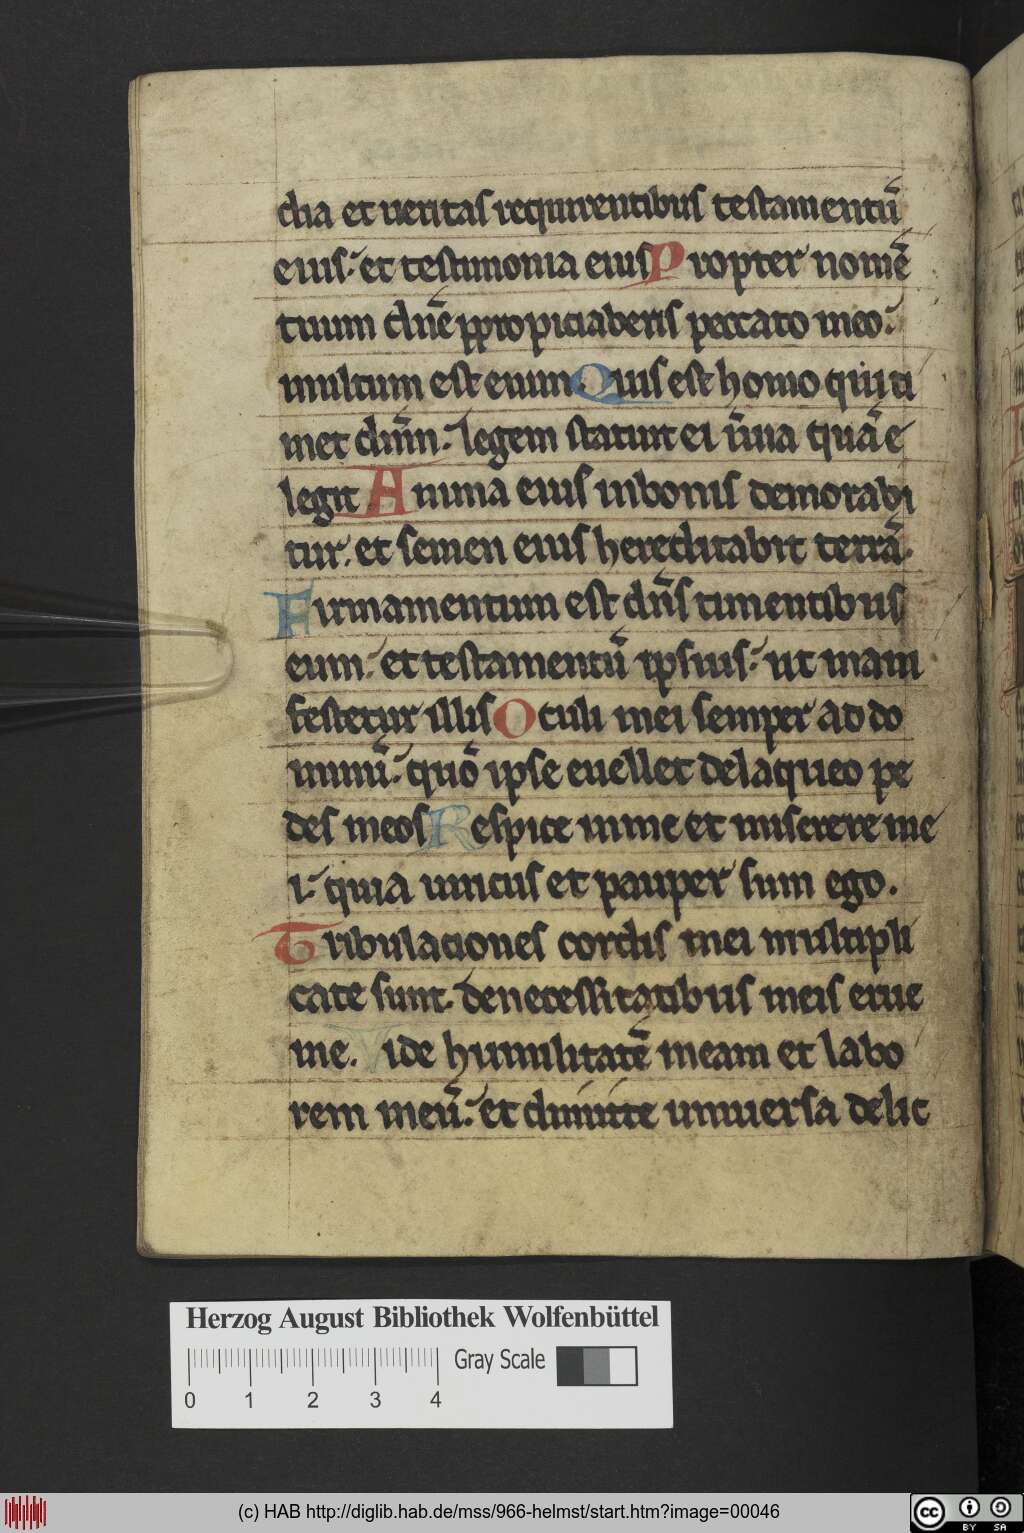 dia et ueritas requirentibus testamentū
eius. et testimonia eius Propter nomē
tuum dn̄e ppropiciaberis peccato meo.
multum est enim. Quis est homo qui ti
met dnm̄. legem statuit ei ī uia quā e
legit Anima eius in bonis demorabi
tur. et semen eius hereditabit terrā.
Firmamentum est dn̄s timentibus
eum. et testamentū ipsius. ut mani
festetur illis Oculi mei semper ad do
minū. quō ipse euellet de laqueo pe
des meos Respice in me et miserere me
i. quia unicus et pauper sum ego.
Tribulationes cordis mei multipli
cate sunt. de necessitatibus meis erue
me. Vide humilitatē meam et labo
rem meū. et dimitte uniuersa delic
Herzog August Bibliothek Wolfenbüttel
Gray Scale
0 1 2 3 4
(c) HAB http://diglib.hab.de/mss/966-helmst/start.htm?image=00046
cc BY SA